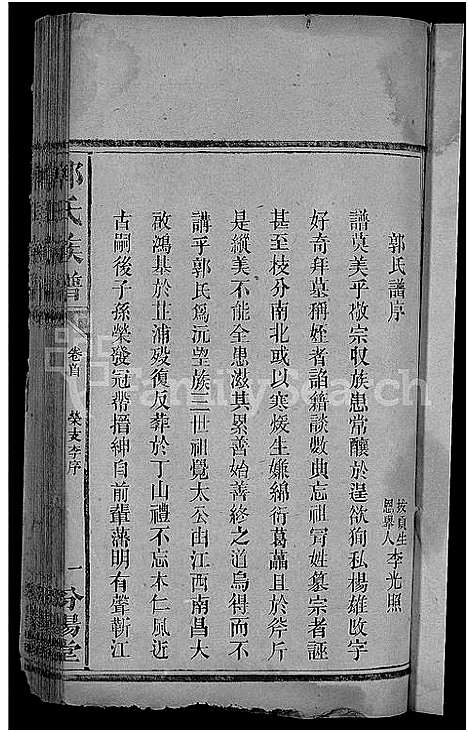 郭氏譜序
拔貢生
恩舉人李光照
譜莫美乎敬宗収族患常釀於逞欲狥私楊雄改字
好奇拜墓稱姓者諂籍談數典忘祖冐姓墓宗者誣
甚至枝分南北或以寒煖生嫌綿衍葛藟且於斧斤
是縱美不能全患滋其累善始善終之道烏得而不
講乎郭氏爲沅望族三世祖覺太公由江西南昌大
啟鴻基於茳浦歿復反葬於丁山禮不忘本仁風近
古嗣後子孫榮發冠帶搢紳自前輩藩明有聲蘄江
郭氏族譜
卷首
榮支李序
一
汾陽堂
FamilySearch